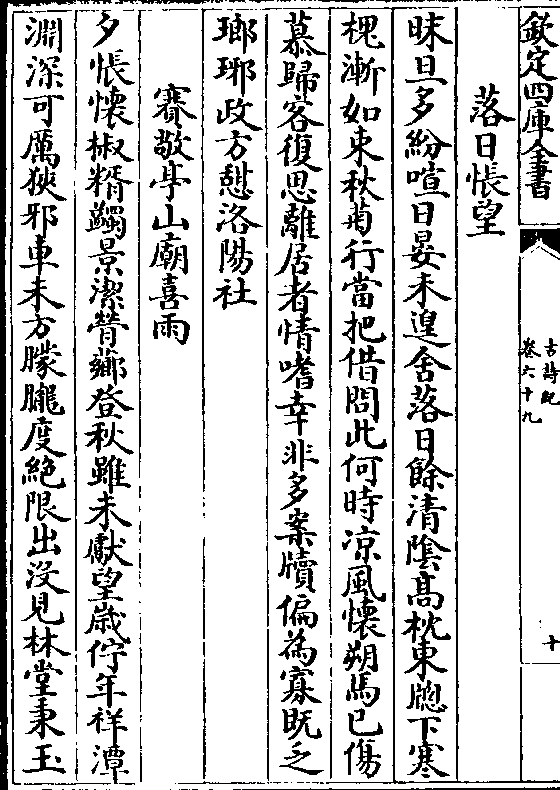 欽定四庫全書
古詩紀
卷六十九
十
落日悵望
昧旦多紛喧日晏未遑舍落日餘清陰髙枕東牎下寒
槐漸如束秋菊行當把借問此何時凉風懷朔馬已傷
慕歸客復思離居者情嗜幸非多案牘偏為寡既乏
瑯琊政方憇洛陽社
賽敬亭山廟喜雨
夕悵懷椒糈蠲景潔膋薌登秋雖未獻望嵗佇年祥潭
淵深可厲狹邪車未方朦朧度絶限出沒見林堂秉玉